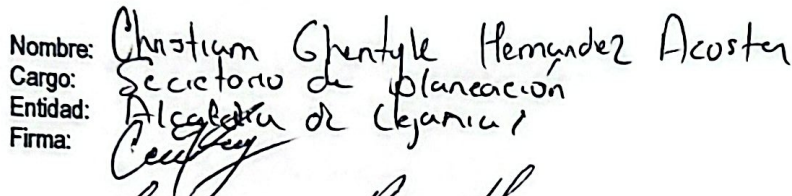 Nombre: Christiam Ghentyle Hernández Acosta
Cargo: Secretario de planeación
Entidad: Alcaldía de Lejanías
Firma: